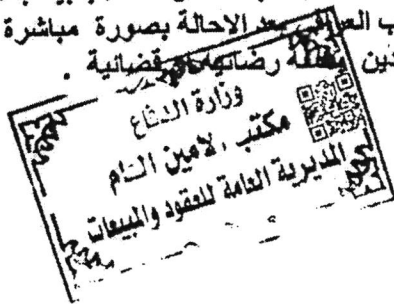 ب العراقي بعد الاحالة بصورة مباشرة
ذين رضائية او قضائية .
وزارة الدفاع
مكتب الامين العام
المديرية العامة للعقود والمبيعات